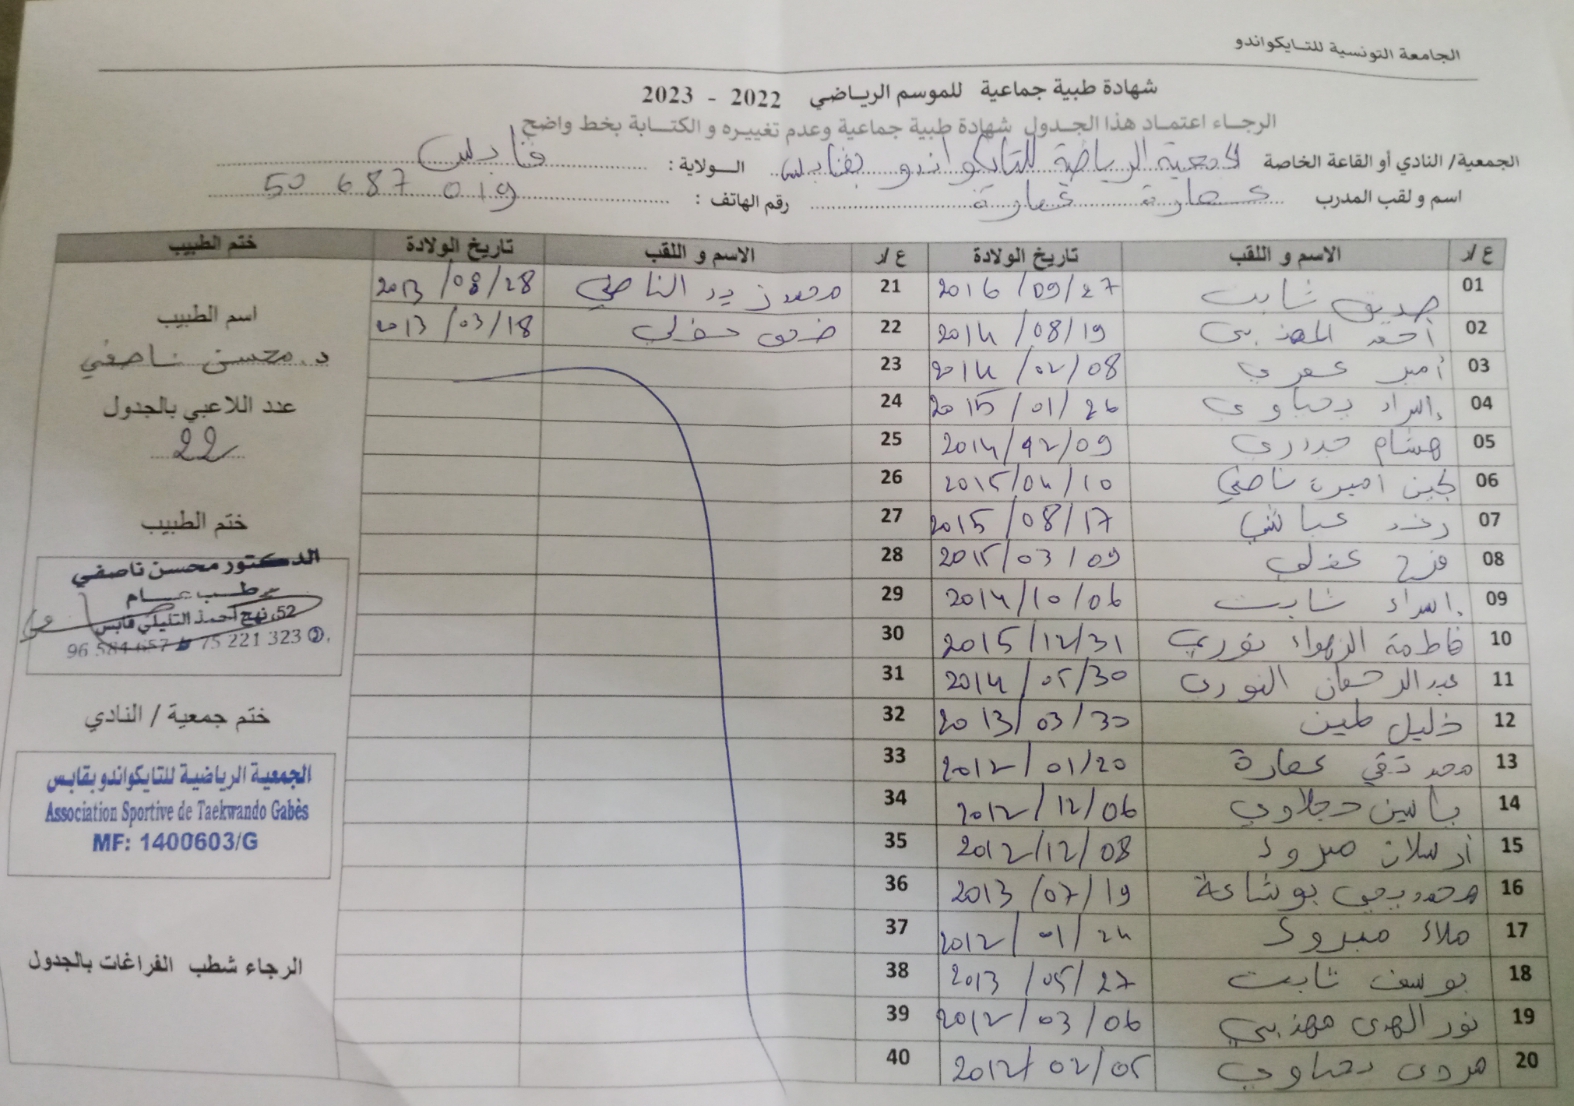 الجامعة التونسية للتايكواندو
شهادة طبية جماعية للموسم الرياضي 2022 - 2023
الرجاء اعتماد هذا الجدول شهادة طبية جماعية وعدم تغييره و الكتابة بخط واضح
الجمعية/ النادي أو القاعة الخاصة الجمعية الرياضية للتايكواندو بقابس الولاية : قابس
اسم و لقب المدرب عمارة عمارة رقم الهاتف : 50 687 019
ع/ر الاسم و اللقب تاريخ الولادة ع/ر الاسم و اللقب تاريخ الولادة ختم الطبيب
01 صديق ثابت 2016/09/27 21 محمد زيد الناصفي 2013/08/28
02 أحمد المهذبي 2014/08/19 22 2013/03/18
اسم الطبيب
د. محسن ناصفي
03 أمير عمري 2014/02/08 23
04 إسراء يحياوي 2015/01/26 24
عدد اللاعبي بالجدول
22
05 هشام حيدري 2014/12/09 25
06 لجين اميرة ناصفي 2015/04/10 26
07 رغد 2015/08/17 27
ختم الطبيب
08 فرح 2015/03/09 28
الدكتور محسن ناصفي
طب عام
52، نهج أحمد التليلي قابس
75 221 323 96 584 657
09 إسراء ثابت 2014/10/06 29
10 فاطمة الزهراء نوري 2015/12/31 30
11 عبد الرحمان النوري 2014/05/30 31
ختم جمعية / النادي
12 خليل 2013/03/30 32
13 محمد تقي عمارة 2012/01/20 33
الجمعية الرياضية للتايكواندو بقابس
Association Sportive de Taekwando Gabès
MF: 1400603/G
14 ياسين دجلاوي 2012/12/06 34
15 أرسلان مبروك 2012/12/08 35
16 محمد يحي بوشاعة 2013/07/19 36
17 ملاك مبروك 2012/01/24 37
18 يوسف ثابت 2013/05/27 38
الرجاء شطب الفراغات بالجدول
19 نور الهدى مهذبي 2012/03/06 39
20 يحياوي 2012/02/05 40